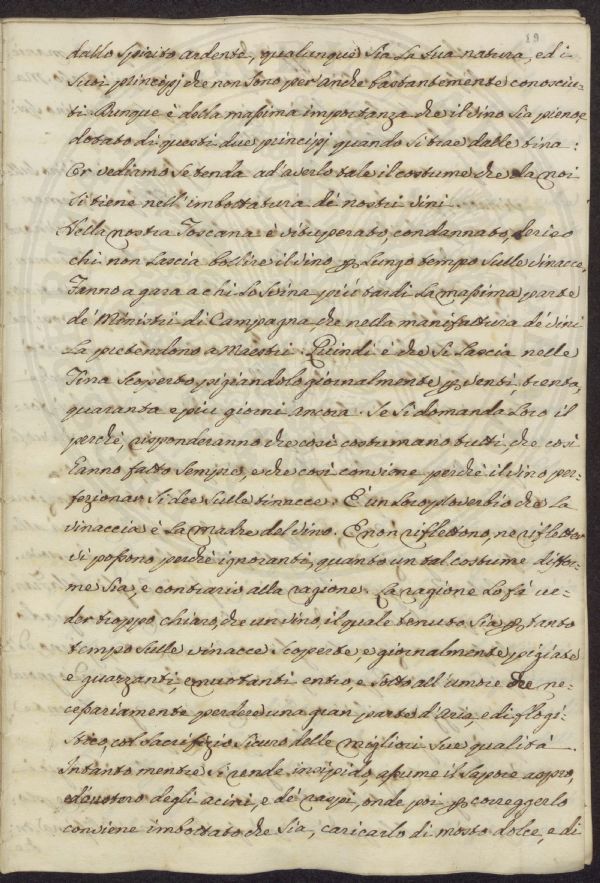 19
dallo Spirito ardente, qualunque sia la sua natura, ed i
suoi principj che non sono per anche bastantemente conosciu-
ti. Dunque è della massima importanza che il vino sia pieno, e
dotato di questi due principj quando si trae dalle tina:
Or vediamo se tenda ad averlo tale il costume che da noi
si tiene nell'imbottatura de' nostri vini.
Nella nostra Toscana è vituperato, condannato, deriso
chi non lascia bollire il vino p lungo tempo sulle vinacce,
Fanno a gara a chi lo svina più tardi la massima parte
de' Ministri di Campagna che nella manifattura de' vini
la pretendono a Maestri. Quindi è che si lascia nelle
Tina scoperto pigiandolo giornalmente p venti, trenta,
quaranta e più giorni ancora. Se si domanda loro il
perchè, risponderanno che così costumano tutti, che così
hanno fatto sempre, e che così conviene perchè il vino per-
fezionar si dee sulle vinacce. È un loro proverbio che la
vinaccia è la madre del vino. E non riflettono, ne riflettor
vi possono perchè ignoranti, quanto un tal costume diffor-
me sia, e contrario alla ragione. La ragione lo fà ve-
der troppo chiaro, che un vino, il quale tenuto sia p tanto
tempo sulle vinacce scoperte, e giornalmente pigiate
e guazzanti, e nuotanti entro, e sotto all'umore dee ne-
cessariamente perdere una gran parte d'aria, e di flogi-
stico, col sacrifizio sicuro delle migliori sue qualità.
Intanto mentre si rende insipido, assume il sapore aspro,
ed austero degli acini, e de' raspi, onde poi p correggerlo
conviene imbottato che sia, caricarlo di mosto dolce, e di